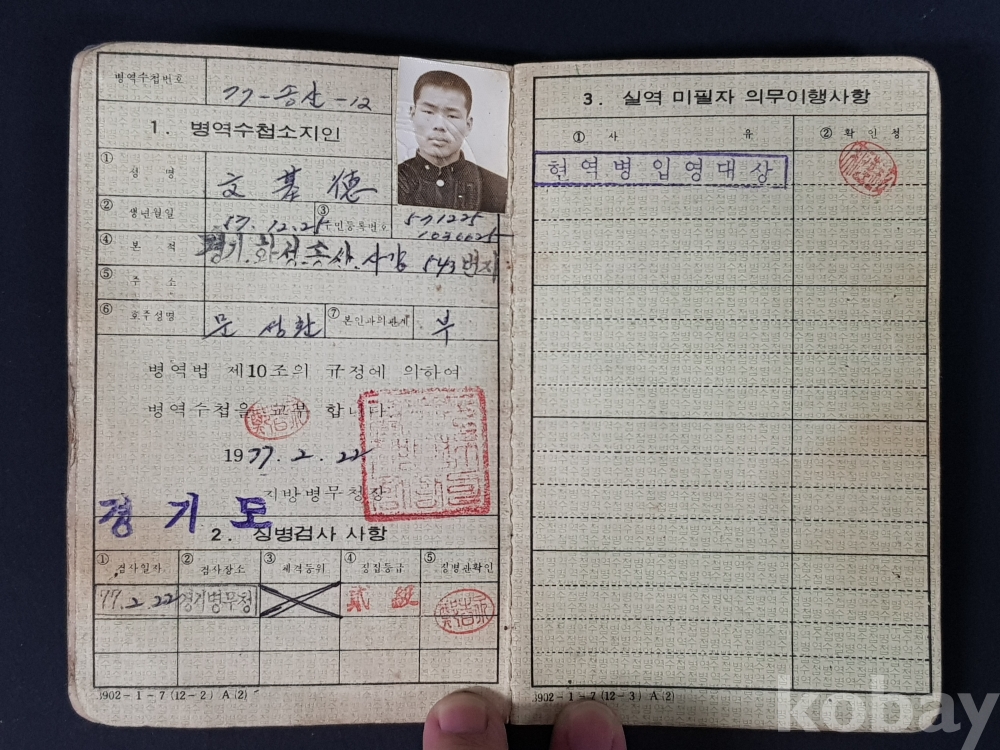 병역수첩번호
77-송산-12
1. 병역수첩소지인
① 성명
文基德
② 생년월일
57.12.25
③ 주민등록번호
571225
1036625
④ 본적
경기 화성 송산 사강 543번지
⑤ 주소
⑥ 호주성명
문성환
⑦ 본인과의관계
부
병역법 제10조의 규정에 의하여
병역수첩을 교부 합니다
1977.2.22
지방병무청장
경기도
2. 징병검사 사항
① 검사일자
② 검사장소
③ 체격등위
④ 징집등급
⑤ 징병관확인
77.2.22
경기병무청
貳級
3902-1-7(12-2) A(2)
3. 실역 미필자 의무이행사항
① 사유
② 확인청
현역병입영대상
3902-1-7(12-3) A(2)
kobay